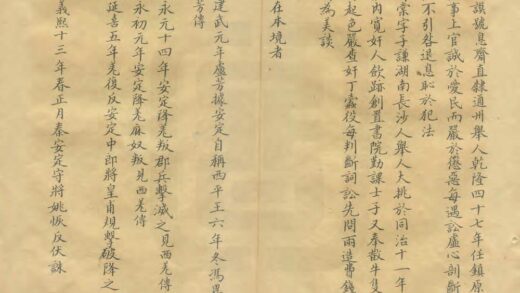 謨號息齋直隸通州舉人乾隆四十七年任鎮原
事上官誠於愛民而嚴於懲惡每遇訟虛心剖斷
不引咎退息恥於犯法
棠字子謙湖南長沙人舉人大挑於同治十一年
內寬奸人欲跡創置書院勤課士子又奉散牛隻
起色嚴查奸丁蠹役每判斷詞訟先問兩造帶錢
為美談
在本境者
建武元年盧芳據安定自稱西平王六年冬馮異
芳傳
永元十四年安定降羌叛郡兵擊滅之見西羌傳
永初元年安定降羌麻奴叛見西羌傳
延喜五年羌復反安定中郎將皇甫規擊破降之
義熙十三年春正月秦安定守將姚恢反伏誅